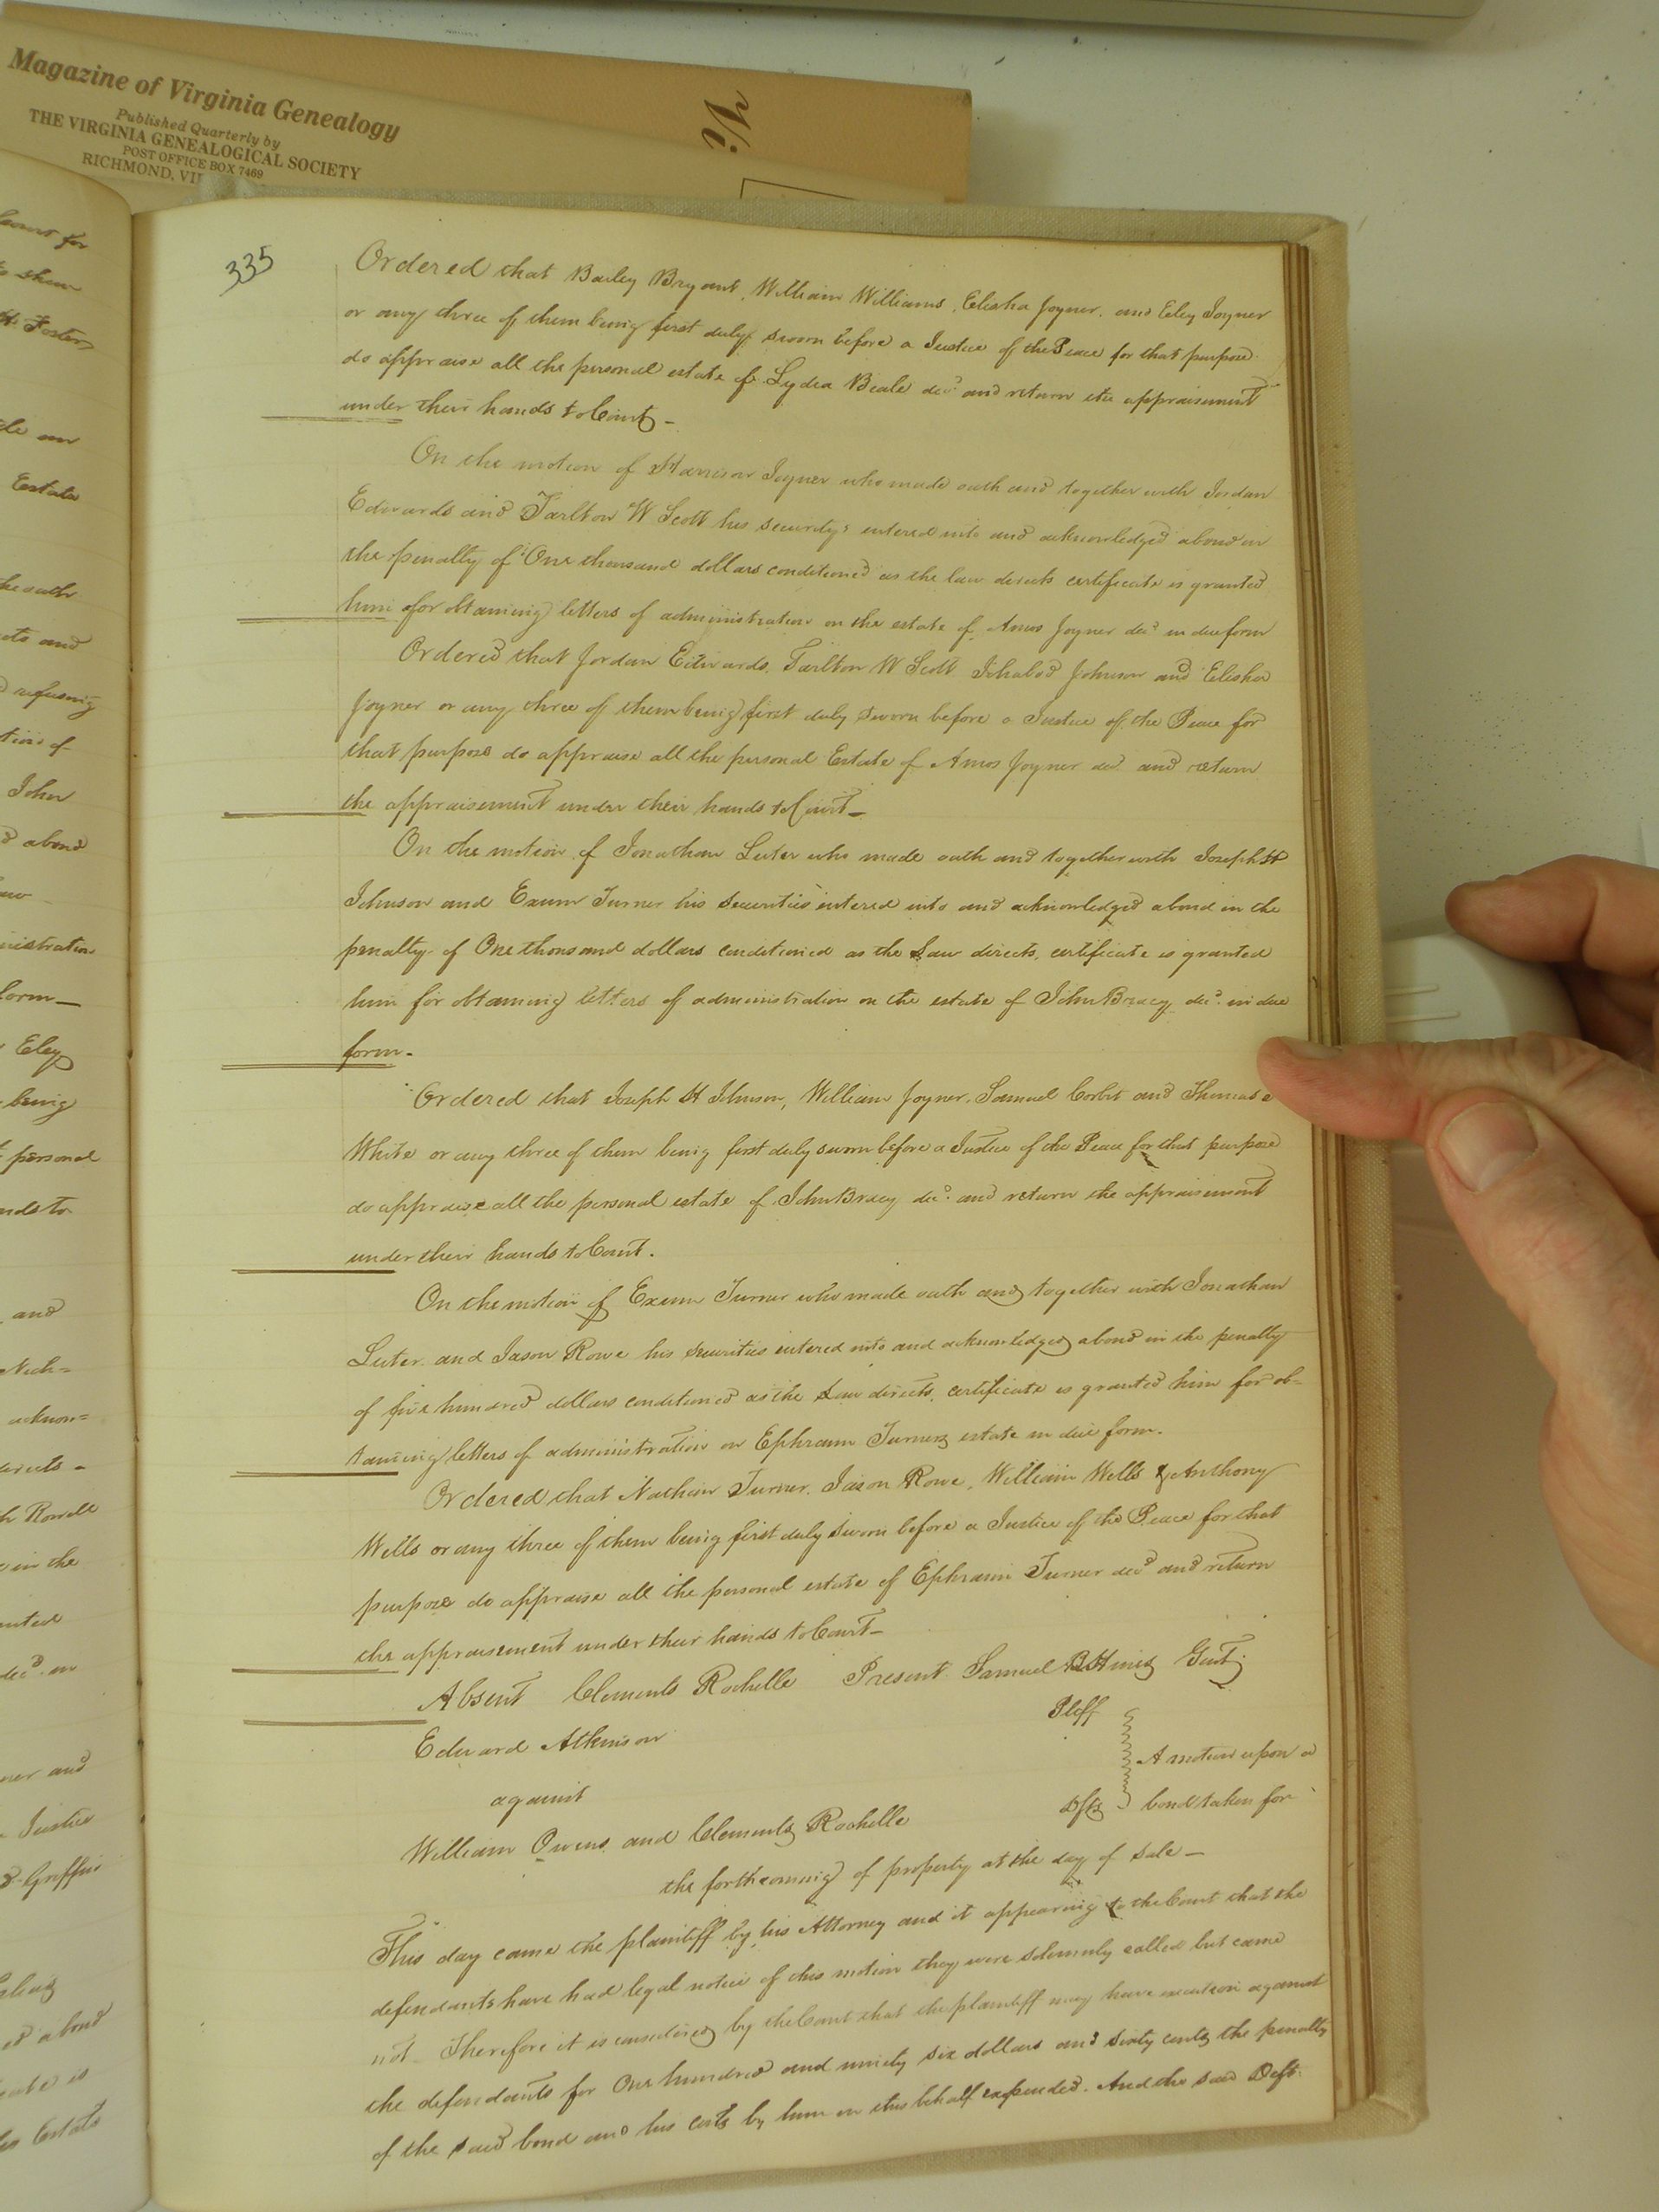 Magazine of Virginia Genealogy
Published Quarterly by
THE VIRGINIA GENEALOGICAL SOCIETY
POST OFFICE BOX 7469
RICHMOND, VI
335
Ordered that Bailey Bryant, William Williams, Elisha Joyner, and Eley Joyner
or any three of them being first duly sworn before a Justice of the Peace for that purpose
do appraise all the personal estate of Lydia Beale decd and return the appraisement
under their hands to Court –
On the motion of Harrison Joyner who made oath and together with Jordan
Edwards and Tarlton W Scott his securitys entered into and acknowledged a bond in
the penalty of One thousand dollars conditioned as the law directs certificate is granted
him for obtaining letters of administration on the estate of Amos Joyner decd in due form
Ordered that Jordan Edwards, Tarlton W Scott Ichabod Johnson and Elisha
Joyner or any three of them being first duly sworn before a Justice of the Peace for
that purpose do appraise all the personal Estate of Amos Joyner decd and return
the appraisement under their hands to Court –
On the motion of Jonathan Luter who made oath and together with Joseph H
Johnson and Exum Turner his securities entered into and acknowledged a bond in the
penalty of One thousand dollars conditioned as the Law directs, certificate is granted
him for obtaining letters of administration on the estate of John Bracy decd. in due
form –
Ordered that Joseph H Johnson, William Joyner, Samuel Corbit and Thomas
White or any three of them being first duly sworn before a Justice of the Peace for that purpose
do appraise all the personal estate of John Bracy decd. and return the appraisement
under their hands to Court.
On the motion of Exum Turner who made oath and together with Jonathan
Luter and Jason Rowe his securities entered into and acknowledged a bond in the penalty
of five hundred dollars conditioned as the Law directs, certificate is granted him for ob=
taining letters of administration on Ephraim Turners estate in due form.
Ordered that Nathan Turner, Jason Rowe, William Wells & Anthony
Wells or any three of them being first duly sworn before a Justice of the Peace for that
purpose do appraise all the personal estate of Ephraim Turner decd and return
the appraisement under their hands to Court –
Absent Clements Rochelle Present Samuel B Hines Gent.
Edward Atkinson Pltff
against A motion upon a
William Owens and Clements Rochelle Dfts bond taken for
the forthcoming of property at the day of sale –
This day came the plaintiff by his Attorney and it appearing to the Court that the
defendants have had legal notice of this motion they were solemnly called but came
not – Therefore it is considered by the Court that the plaintiff may have execution against
the defendants for One hundred and ninety six dollars and sixty cents the penalty
of the said bond and his costs by him in this behalf expended. And the said Deft.